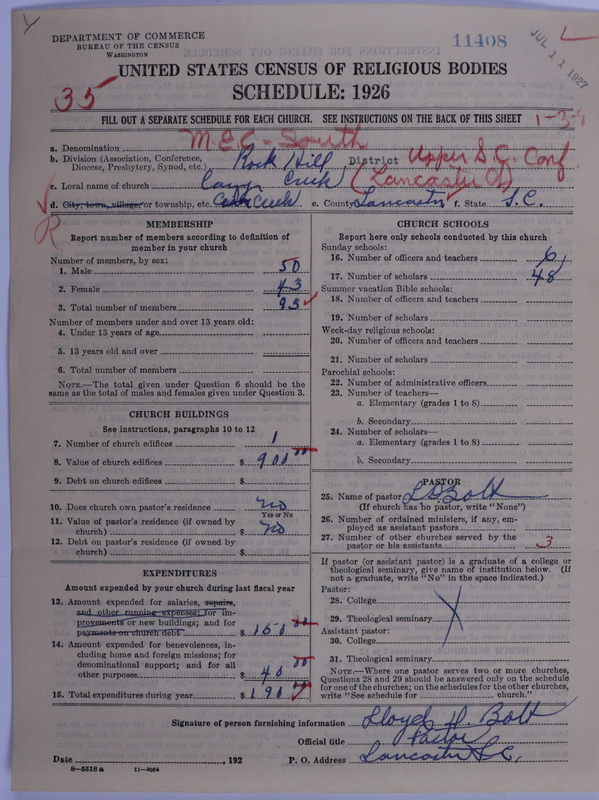 DEPARTMENT OF COMMERCE
BUREAU OF THE CENSUS
WASHINGTON
11408
JUL 11 1927
UNITED STATES CENSUS OF RELIGIOUS BODIES
35
SCHEDULE: 1926
FILL OUT A SEPARATE SCHEDULE FOR EACH CHURCH. SEE INSTRUCTIONS ON THE BACK OF THIS SHEET
a. Denomination M.E.C. South
b. Division (Association, Conference, Diocese, Presbytery, Synod, etc.) Rock Hill District Upper S.C. Conf
c. Local name of church Camp Creek (Lancaster Ct)
d. City, town, village, or township, etc. Creek e. County Lancaster f. State S.C.
MEMBERSHIP
Report number of members according to definition of member in your church
Number of members, by sex:
1. Male 50
2. Female 43
3. Total number of members 93
Number of members under and over 13 years old:
4. Under 13 years of age
5. 13 years old and over
6. Total number of members
NOTE.—The total given under Question 6 should be the same as the total of males and females given under Question 3.
CHURCH BUILDINGS
See instructions, paragraphs 10 to 12
7. Number of church edifices 1
8. Value of church edifices $ 900 00
9. Debt on church edifices $
10. Does church own pastor's residence no
Yes or No
11. Value of pastor's residence (if owned by church) $ no
12. Debt on pastor's residence (if owned by church) $
EXPENDITURES
Amount expended by your church during last fiscal year
13. Amount expended for salaries, repairs, and other running expenses; for improvements or new buildings; and for payments on church debt $ 150 00
14. Amount expended for benevolences, including home and foreign missions; for denominational support; and for all other purposes $ 40 00
15. Total expenditures during year $ 190 00
CHURCH SCHOOLS
Report here only schools conducted by this church
Sunday schools:
16. Number of officers and teachers 6
17. Number of scholars 48
Summer vacation Bible schools:
18. Number of officers and teachers
19. Number of scholars
Week-day religious schools:
20. Number of officers and teachers
21. Number of scholars
Parochial schools:
22. Number of administrative officers
23. Number of teachers—
a. Elementary (grades 1 to 8)
b. Secondary
24. Number of scholars—
a. Elementary (grades 1 to 8)
b. Secondary
PASTOR
25. Name of pastor L D Bolt
(If church has no pastor, write "None")
26. Number of ordained ministers, if any, employed as assistant pastors
27. Number of other churches served by the pastor or his assistants 3
If pastor (or assistant pastor) is a graduate of a college or theological seminary, give name of institution below. (If not a graduate, write "No" in the space indicated.)
Pastor:
28. College
29. Theological seminary X
Assistant pastor:
30. College
31. Theological seminary
NOTE.—Where one pastor serves two or more churches, Questions 28 and 29 should be answered only on the schedule for one of the churches; on the schedules for the other churches, write "See schedule for ________ church."
Signature of person furnishing information Lloyd D. Bolt
Official title Pastor
Date ________, 192 P. O. Address Lancaster S.C.
8-5518a 11-9024